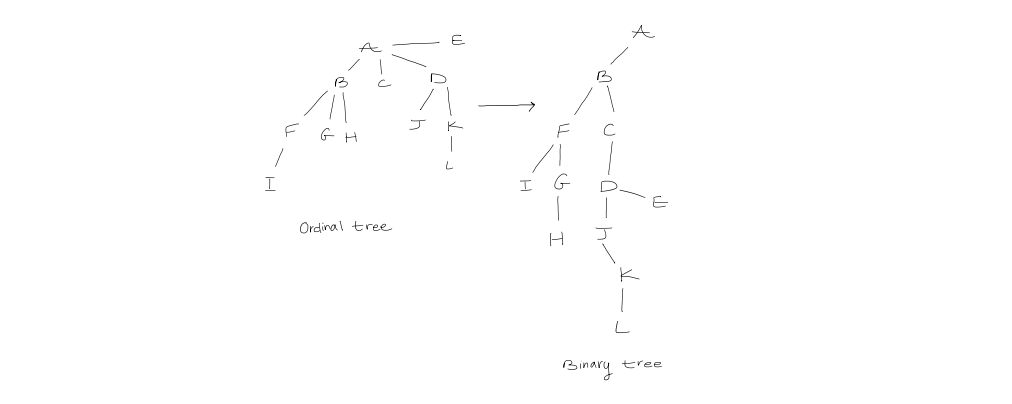 A E
B C D
F G H J K
I L
Ordinal tree
A
B
F C
I G D E
H J
K
L
Binary tree